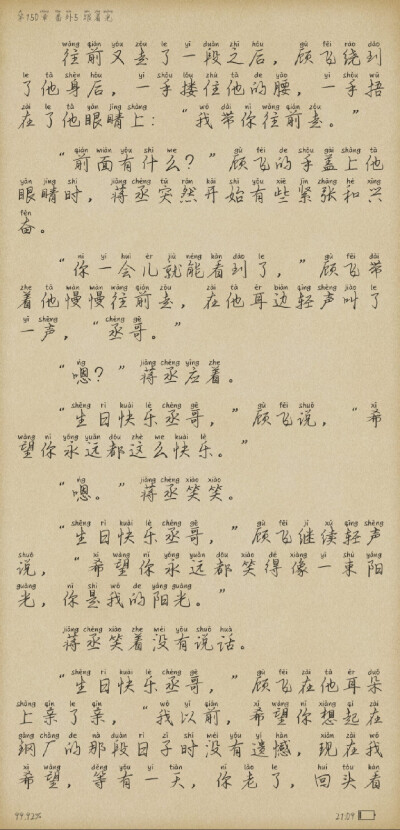 第150章 番外3 跟着光
往前又走了一段之后，顾飞绕到
了他身后，一手搂住他的腰，一手捂
在了他眼睛上：“我带你往前走。”
“前面有什么？”顾飞的手盖上他
眼睛时，蒋丞突然开始有些紧张和兴
奋。
“你一会儿就能看到了，”顾飞带
着他慢慢往前走，在他耳边轻声叫了
一声，“丞哥。”
“嗯？”蒋丞应着。
“生日快乐丞哥，”顾飞说，“希
望你永远都这么快乐。”
“嗯。”蒋丞笑笑。
“生日快乐丞哥，”顾飞继续轻声
说，“希望你永远都笑得像一束阳
光，你是我的阳光。”
蒋丞笑着没有说话。
“生日快乐丞哥，”顾飞在他耳朵
上亲了亲，“我以前，希望你想起在
钢厂的那段日子时没有遗憾，现在我
希望，等有一天，你老了，回头看
99.92%
21:09